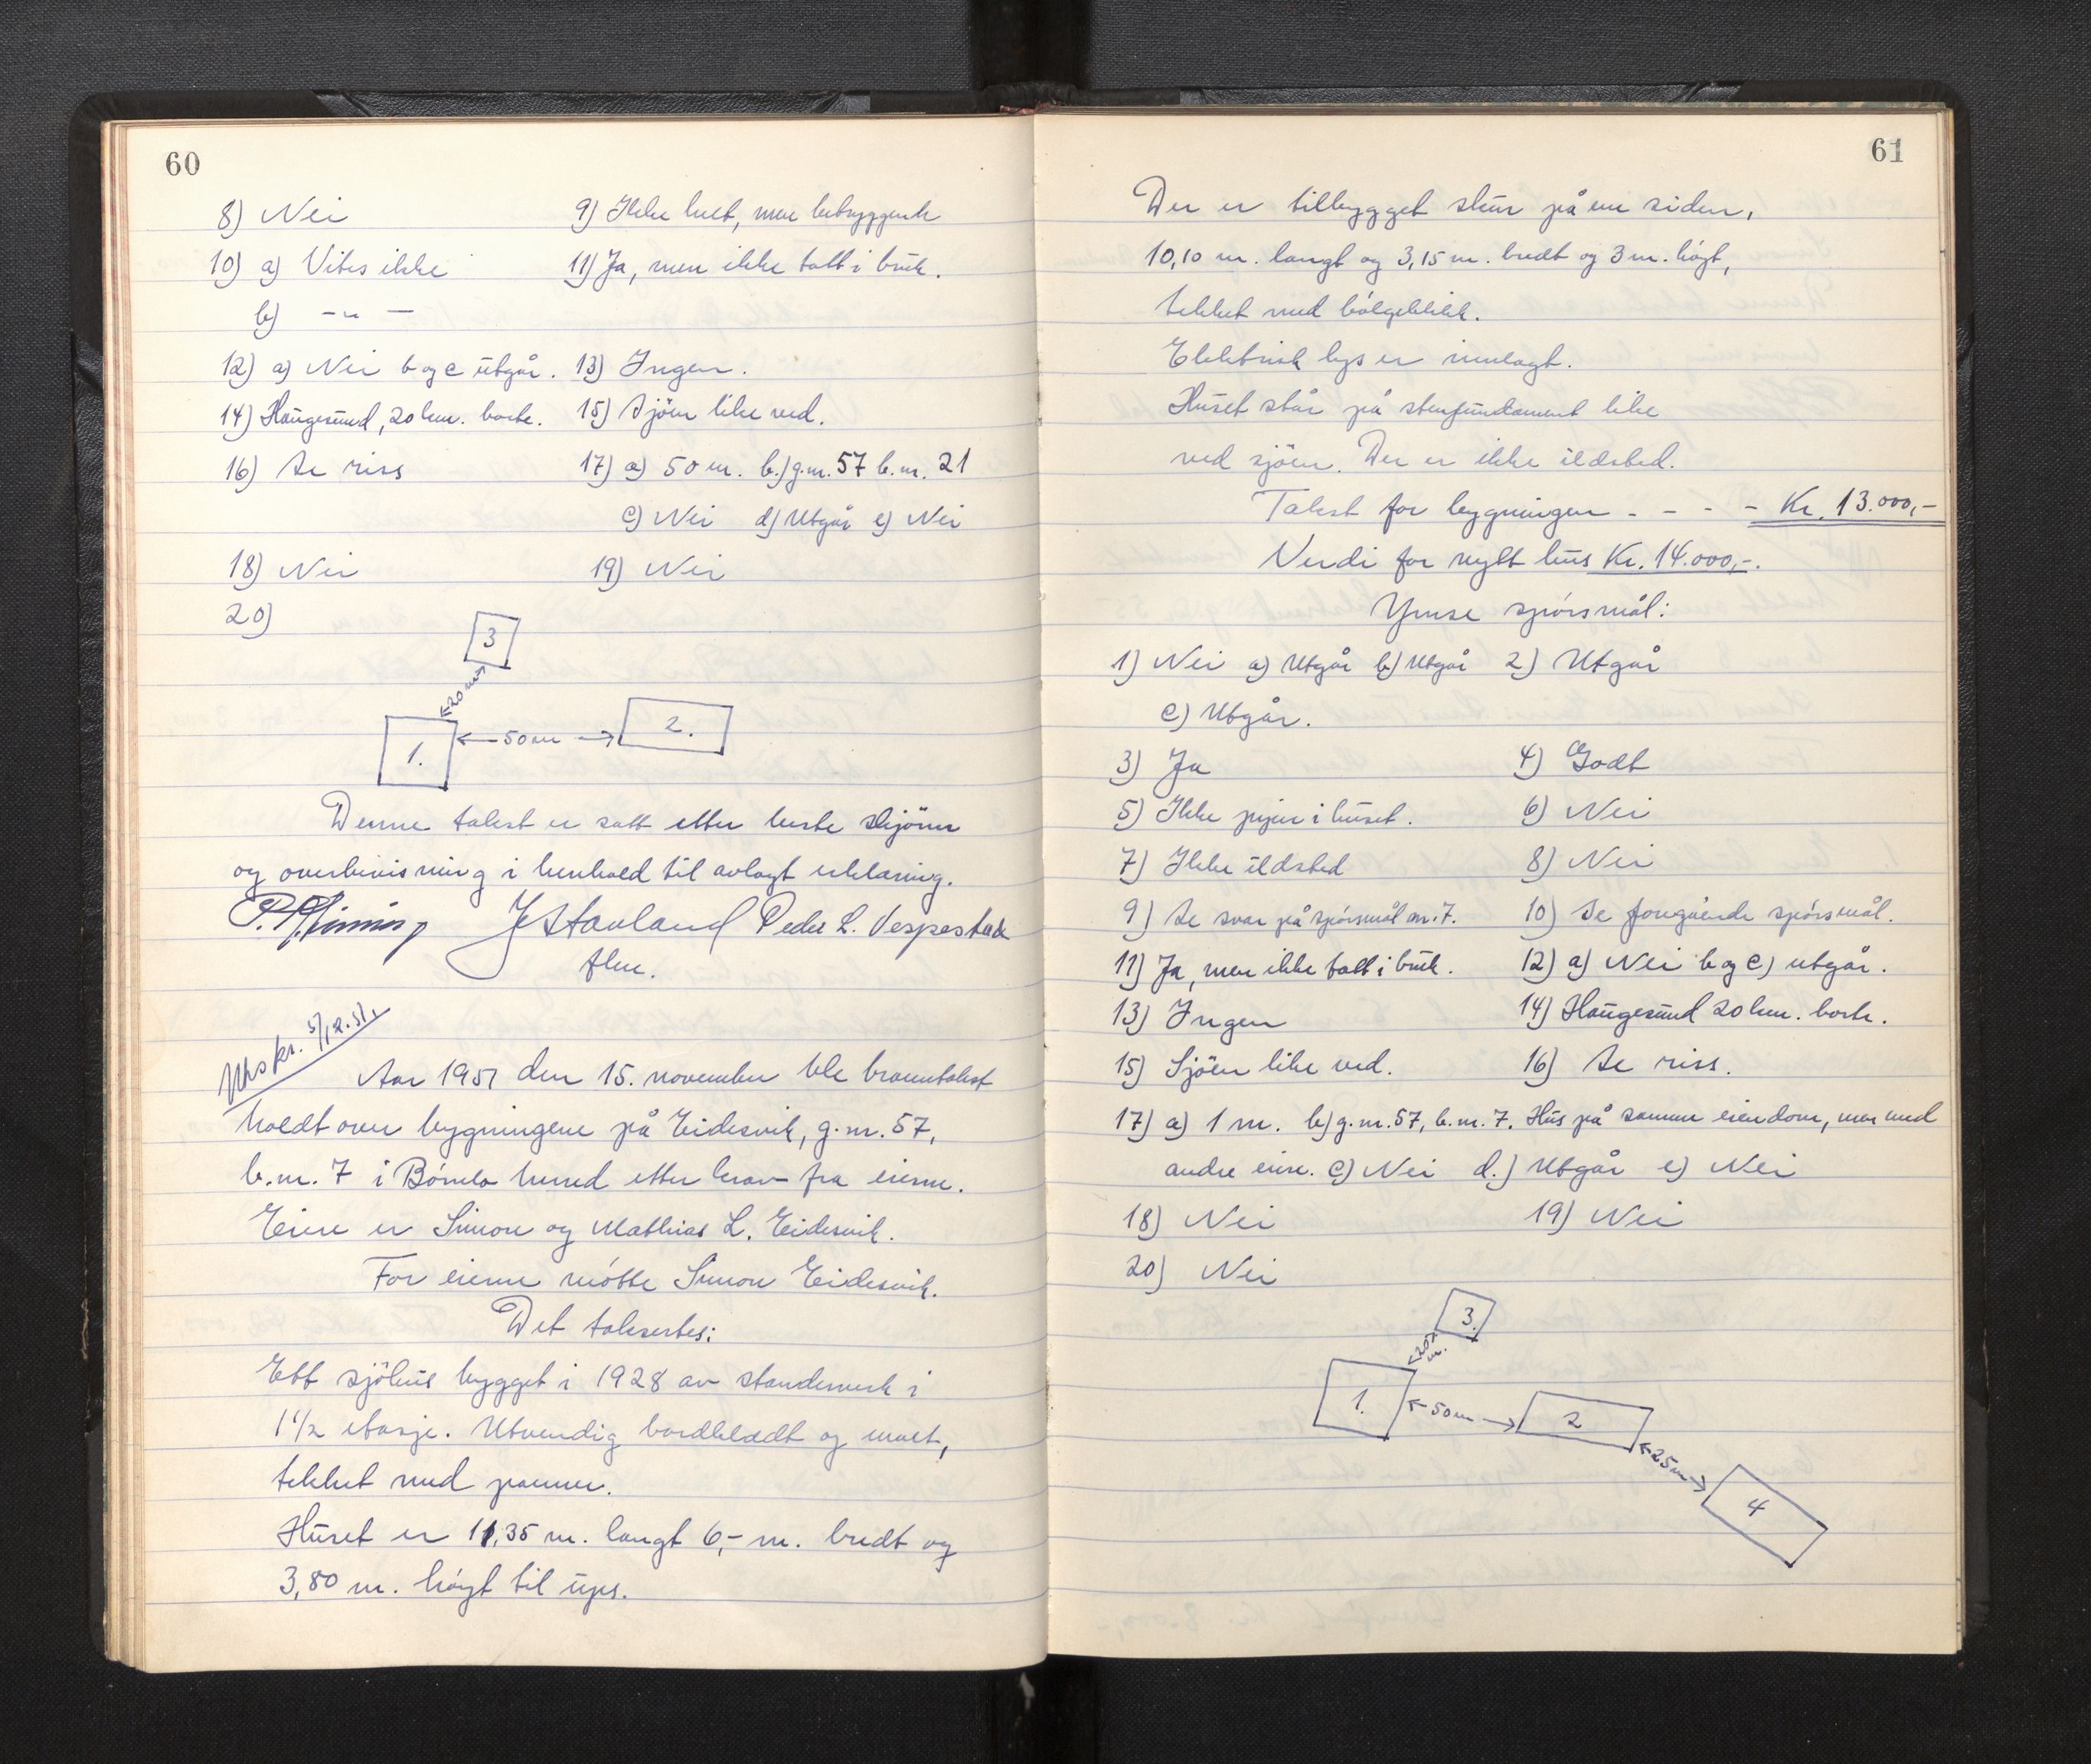 60
8) Nei 9) Ikke helt, men betryggende
10) a) Vites ikke 11) Ja, men ikke tatt i bruk.
b) - " -
12) a) Nei b og c utgår. 13) Ingen.
14) Haugesund, 20 km. borte. 15) Sjöen like ved.
16) Se riss 17) a) 50 m. b.) g.nr. 57 b.nr. 21
c) Nei d) Utgår e) Nei
18) Nei 19) Nei
20)
3
20 m
1. 50 m 2.
Denne takst er satt etter beste skjönn
og overbevisning i henhold til avlagt erklæring.
J Stavland Peder L. Vespestad
Utskr. 5/12.51.
Aar 1951 den 15. november ble branntakst
holdt over bygningene på Eidesvik, g.nr. 57,
b.nr. 7 i Bömlo herred etter krav fra eierne.
Eiere er Simon og Mathias L. Eidesvik.
For eierne mötte Simon Eidesvik.
Det takseertes:
Ett sjöhus bygget i 1928 av standerverk i
1 1/2 etasje. Utvendig bordkledt og malt,
tekket med panner.
Huset er 11,35 m. langt 6,- m. bredt og
3,80 m. höyt til ups.
61
Der er tilbygget skur på ene siden,
10,10 m. langt og 3,15 m. bredt og 3 m. högt,
tekket med bölgeblikk.
Elektrisk lys er innlagt.
Huset står på stenfundament like
ved sjöen. Der er ikke ildsted.
Takst for bygningen - - - - Kr. 13.000,-
Verdi for nytt hus Kr. 14.000,-.
Ymse spörsmål:
1) Nei a) Utgår b) Utgår 2) Utgår
c) Utgår.
3) Ja 4) Godt
5) Ikke piper i huset. 6) Nei
7) Ikke ildsted 8) Nei
9) Se svar på spörsmål nr. 7. 10) Se foregående spörsmål.
11) Ja, men ikke tatt i bruk. 12) a) Nei b og c) utgår.
13) Ingen 14) Haugesund 20 km. borte.
15) Sjöen like ved. 16) Se riss.
17) a) 1 m. b) g.nr. 57, b.nr. 7. Hus på samme eiendom, men med
andre eiere. c) Nei d.) Utgår e) Nei
18) Nei 19) Nei
20) Nei
3.
20 m.
1. 50 m 2
25 m
4